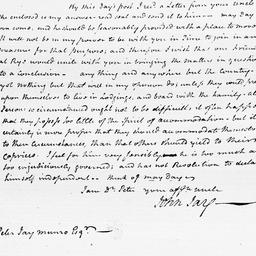 By this day's post I rec'd a letter from your uncle
the enclosed is my answer - read seal and send it to him - may day
soon come, and he should be seasonably provided with a place to move
It will not be in my power to be with you in time to join in any
measures for that purpose; and therefore I wish that our
Rys would unite with you in bringing the matter in question
to a conclusion - any thing and anywhere but the country.
yet nothing but that
upon themselves to be in Lodgings, and board with the family - a
Person so circumstanced ought not to be difficult; it often happens
that they possess too little of the spirit of accommodation - but it
certainly is more proper that they should accommodate themselves
to their circumstances, than that others should yield to their
caprices. I feel for him very sensibly - he is too much and
too injudiciously governed; and has not Resolution to declare
himself independent - think of may day
I am D'r Peter your aff'te uncle
John Jay
Peter Jay Munro Esq'r